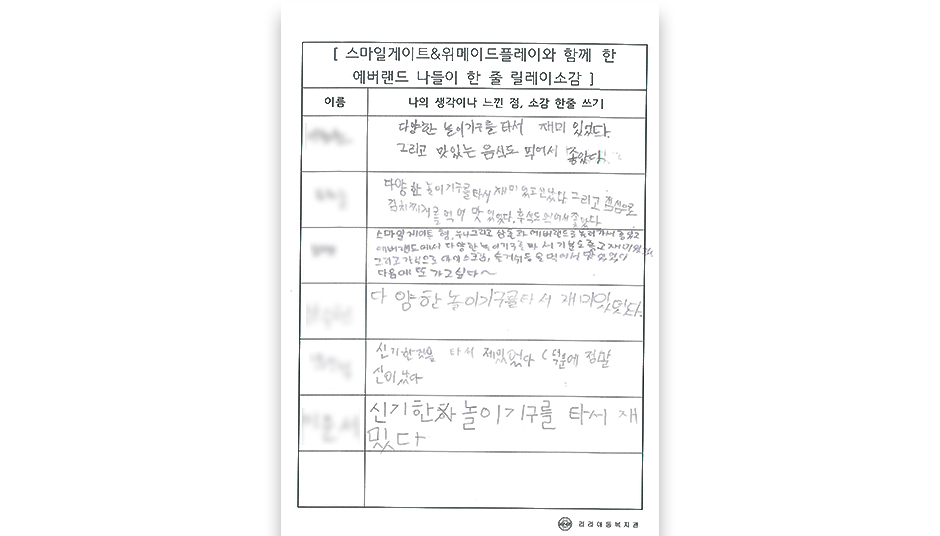 [ 스마일게이트&위메이드플레이와 함께 한
에버랜드 나들이 한 줄 릴레이소감 ]
이름 나의 생각이나 느낀 점, 소감 한줄 쓰기
다양한 놀이기구를 타서 재미 있었다.
그리고 맛있는 음식도 먹어서 좋았다.
다양한 놀이기구를 타서 재미 있고 신났다 그리고 점심으로
김치찌개를 먹어 맛 있었다. 후식도 먹어서 좋았다
스마일게이트 형, 누나 그리고 삼촌과 에버랜드로 놀러가서 좋았고
에버랜드에서 다양한 놀이기구를 타서 기분도 좋고 재미있었
그리고 간식으로 아이스크림, 슬러쉬 등을 먹어서 맛있었어
다음에 또 가고 싶다~
다양한 놀이기구를타서 재미있엇다.
신기한것을 타서 제밌었다 덕분에 정말
신이났다
신기한 놀이기구를 타서 재
밌다
아동복지관